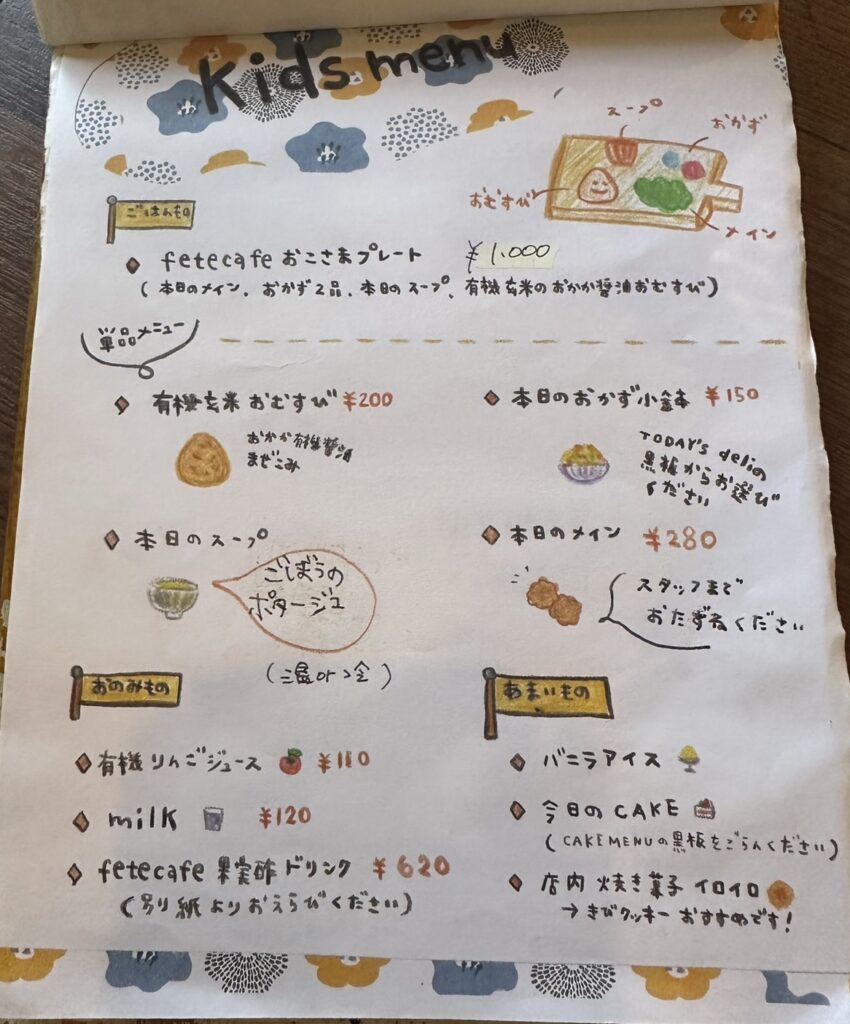 Kids menu
スープ
おかず
おむすび
メイン
ごはんもの
fetecafe おこさまプレート ¥1,000
(本日のメイン、おかず2品、本日のスープ、有機玄米のおかか醤油おむすび)
単品メニュー
有機玄米おむすび ¥200
おかか有機醤油
まぜこみ
本日のおかず小鉢 ¥150
TODAY's deliの
黒板からお選び
ください
本日のスープ
ごぼうの
ポタージュ
(温or冷)
本日のメイン ¥280
スタッフまで
おたずねください
おのみもの
有機りんごジュース
milk ¥120
fetecafe 果実酢ドリンク ¥620
(別紙よりおえらびください)
あまいもの
バニラアイス
今日のCAKE
(CAKEMENUの黒板をごらんください)
店内 焼き菓子イロイロ
→きびクッキーおすすめです!